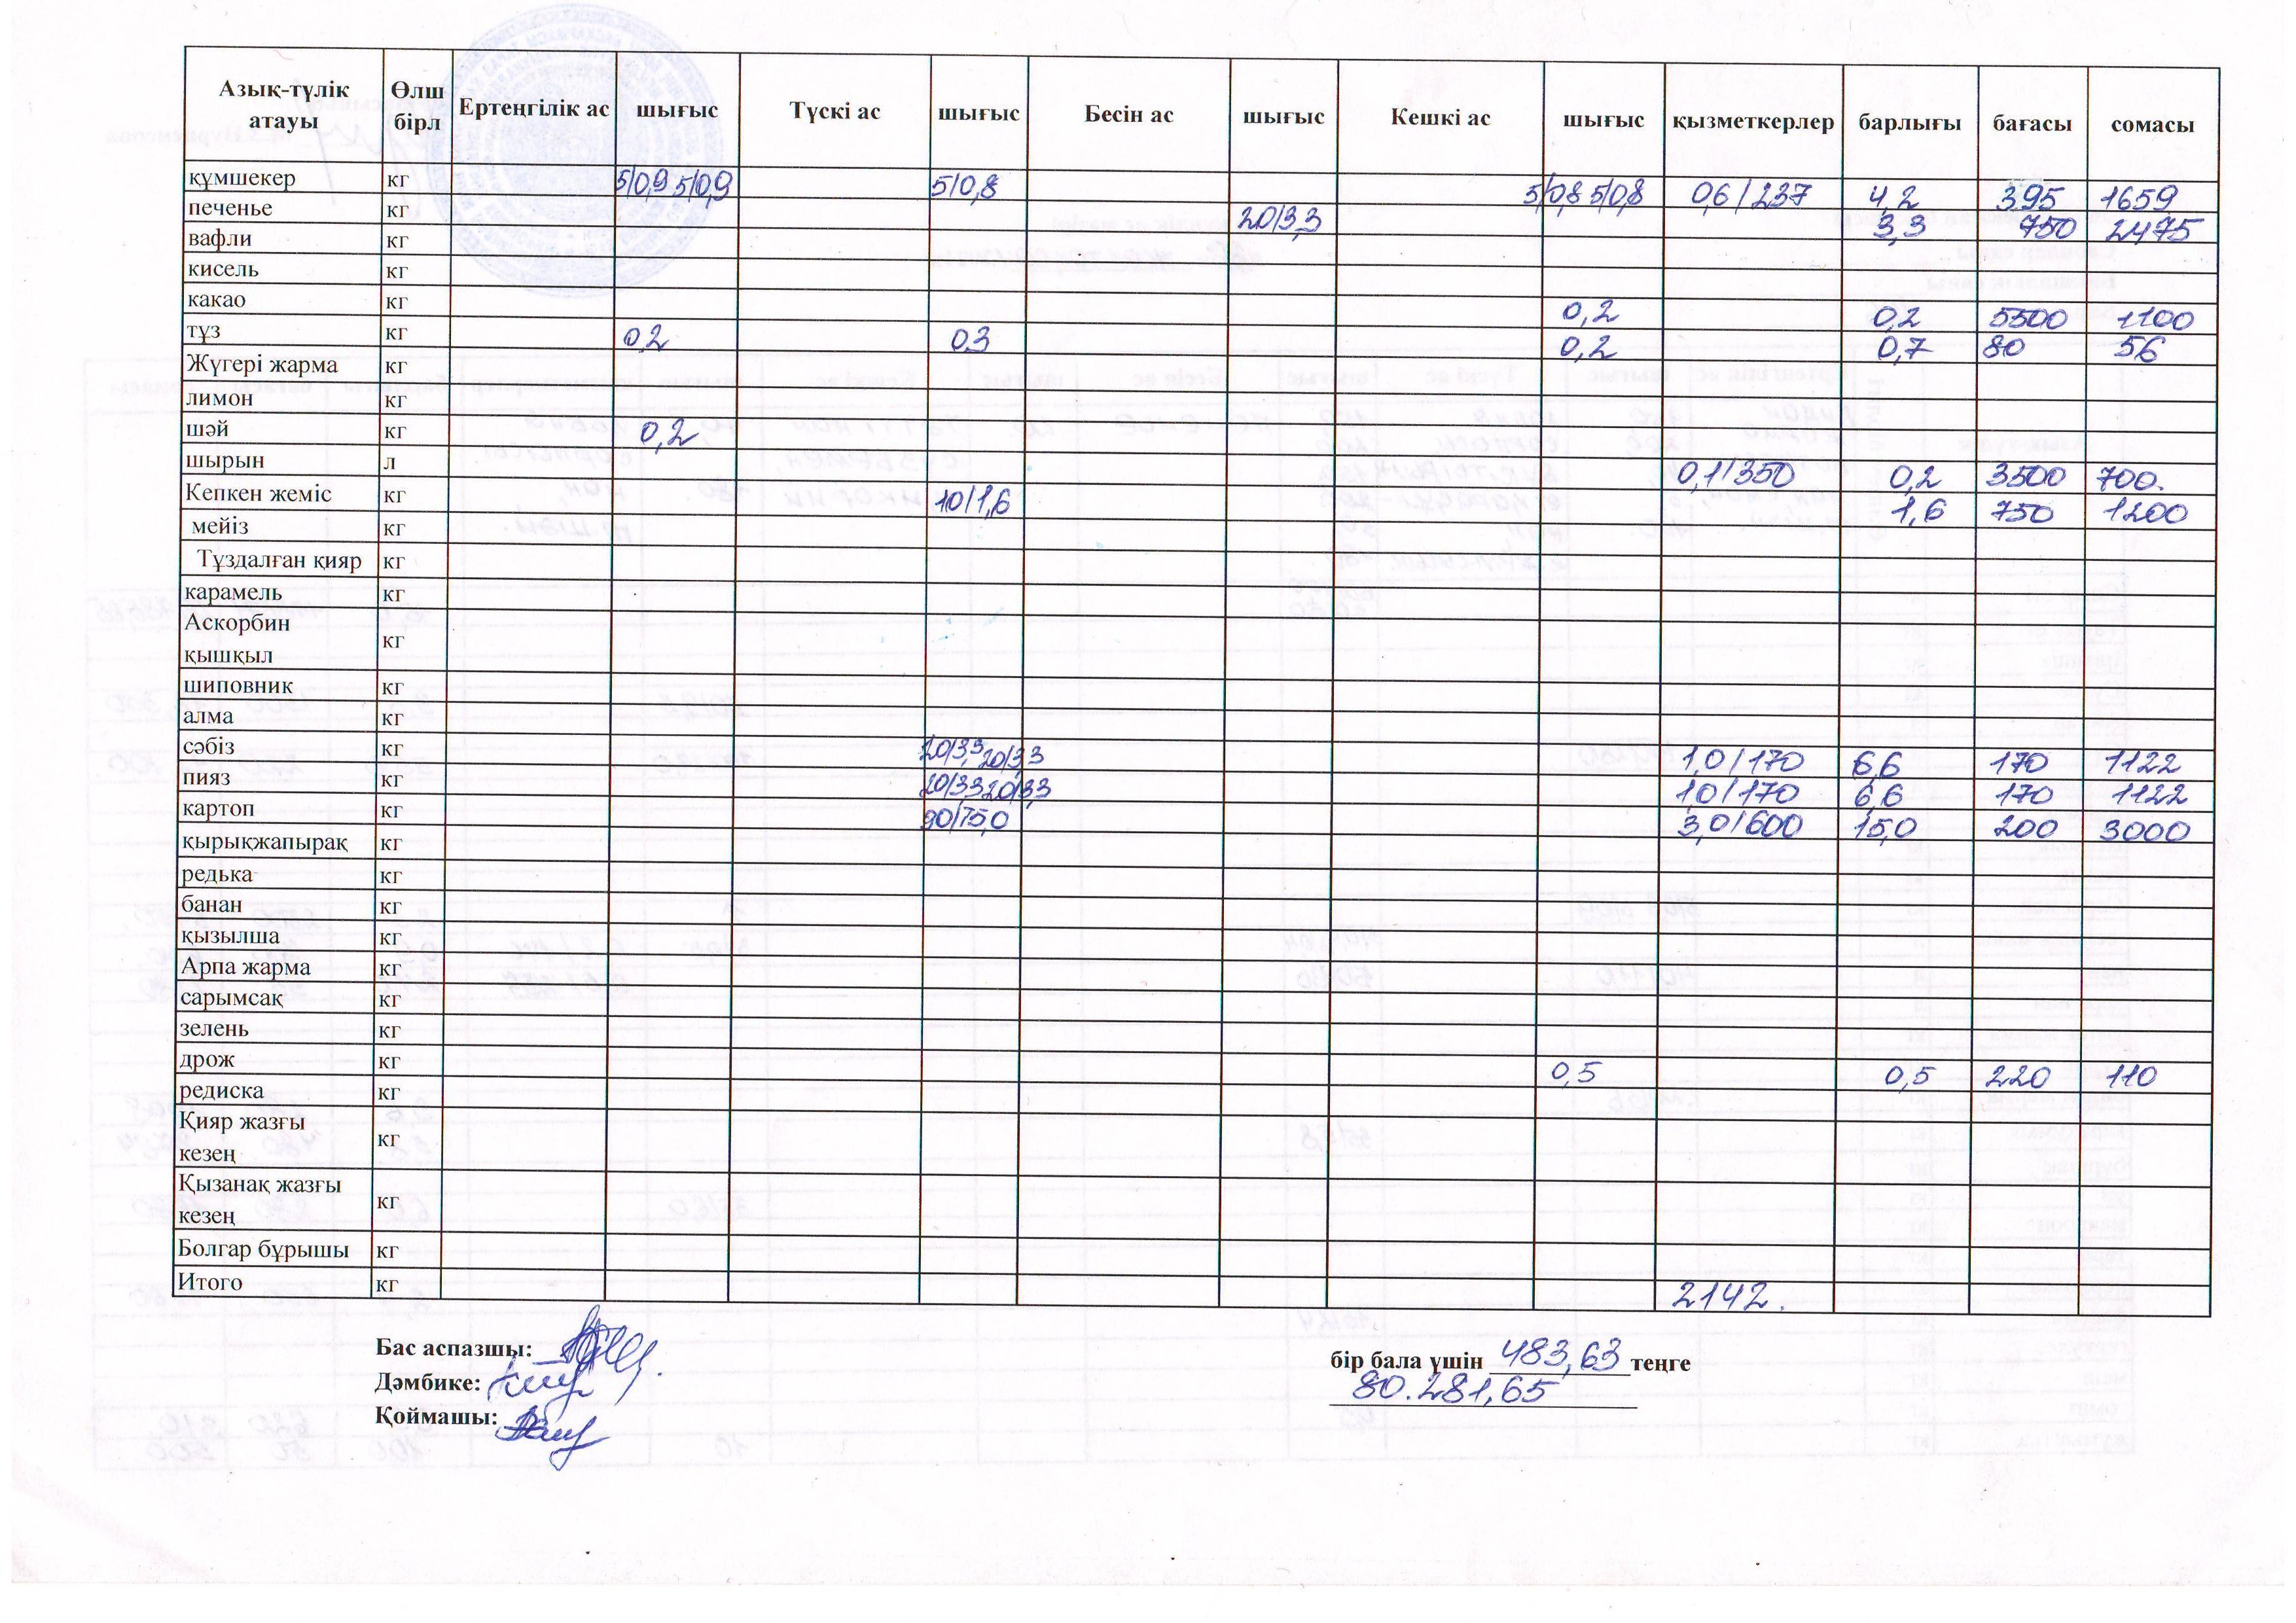 Азық-түлік атауы Өлш бірл Ертеңгілік ас шығыс Түскі ас шығыс Бесін ас шығыс Кешкі ас шығыс қызметкерлер барлығы бағасы сомасы
құмшекер кг 5/0,9 5/0,9 5/0,8 5/0,8 5/0,8 0,6/237 4,2 395 1659
печенье кг 20/3,3 3,3 750 2475
вафли кг
кисель кг
какао кг 0,2 0,2 5500 1100
тұз кг 0,2 0,3 0,2 0,7 80 56
Жүгері жарма кг
лимон кг
шәй кг 0,2
шырын л 0,1/350 0,2 3500 700.
Кепкен жеміс кг 10/1,6 1,6 750 1200
мейіз кг
Тұздалған қияр кг
карамель кг
Аскорбин қышқыл кг
шиповник кг
алма кг
сәбіз кг 20/3,3 20/3,3 1,0/170 6,6 170 1122
пияз кг 20/33 20/3,3 1,0/170 6,6 170 1122
картоп кг 90/15,0 3,0/600 15,0 200 3000
қырықжапырақ кг
редька кг
банан кг
қызылша кг
Арпа жарма кг
сарымсақ кг
зелень кг
дрож кг 0,5 0,5 220 110
редиска кг
Қияр жазғы кезең кг
Қызанақ жазғы кезең кг
Болгар бұрышы кг
Итого кг 2142.
Бас аспазшы:
бір бала үшін 483,63 теңге
Дәмбике:
80.281,65
Қоймашы: